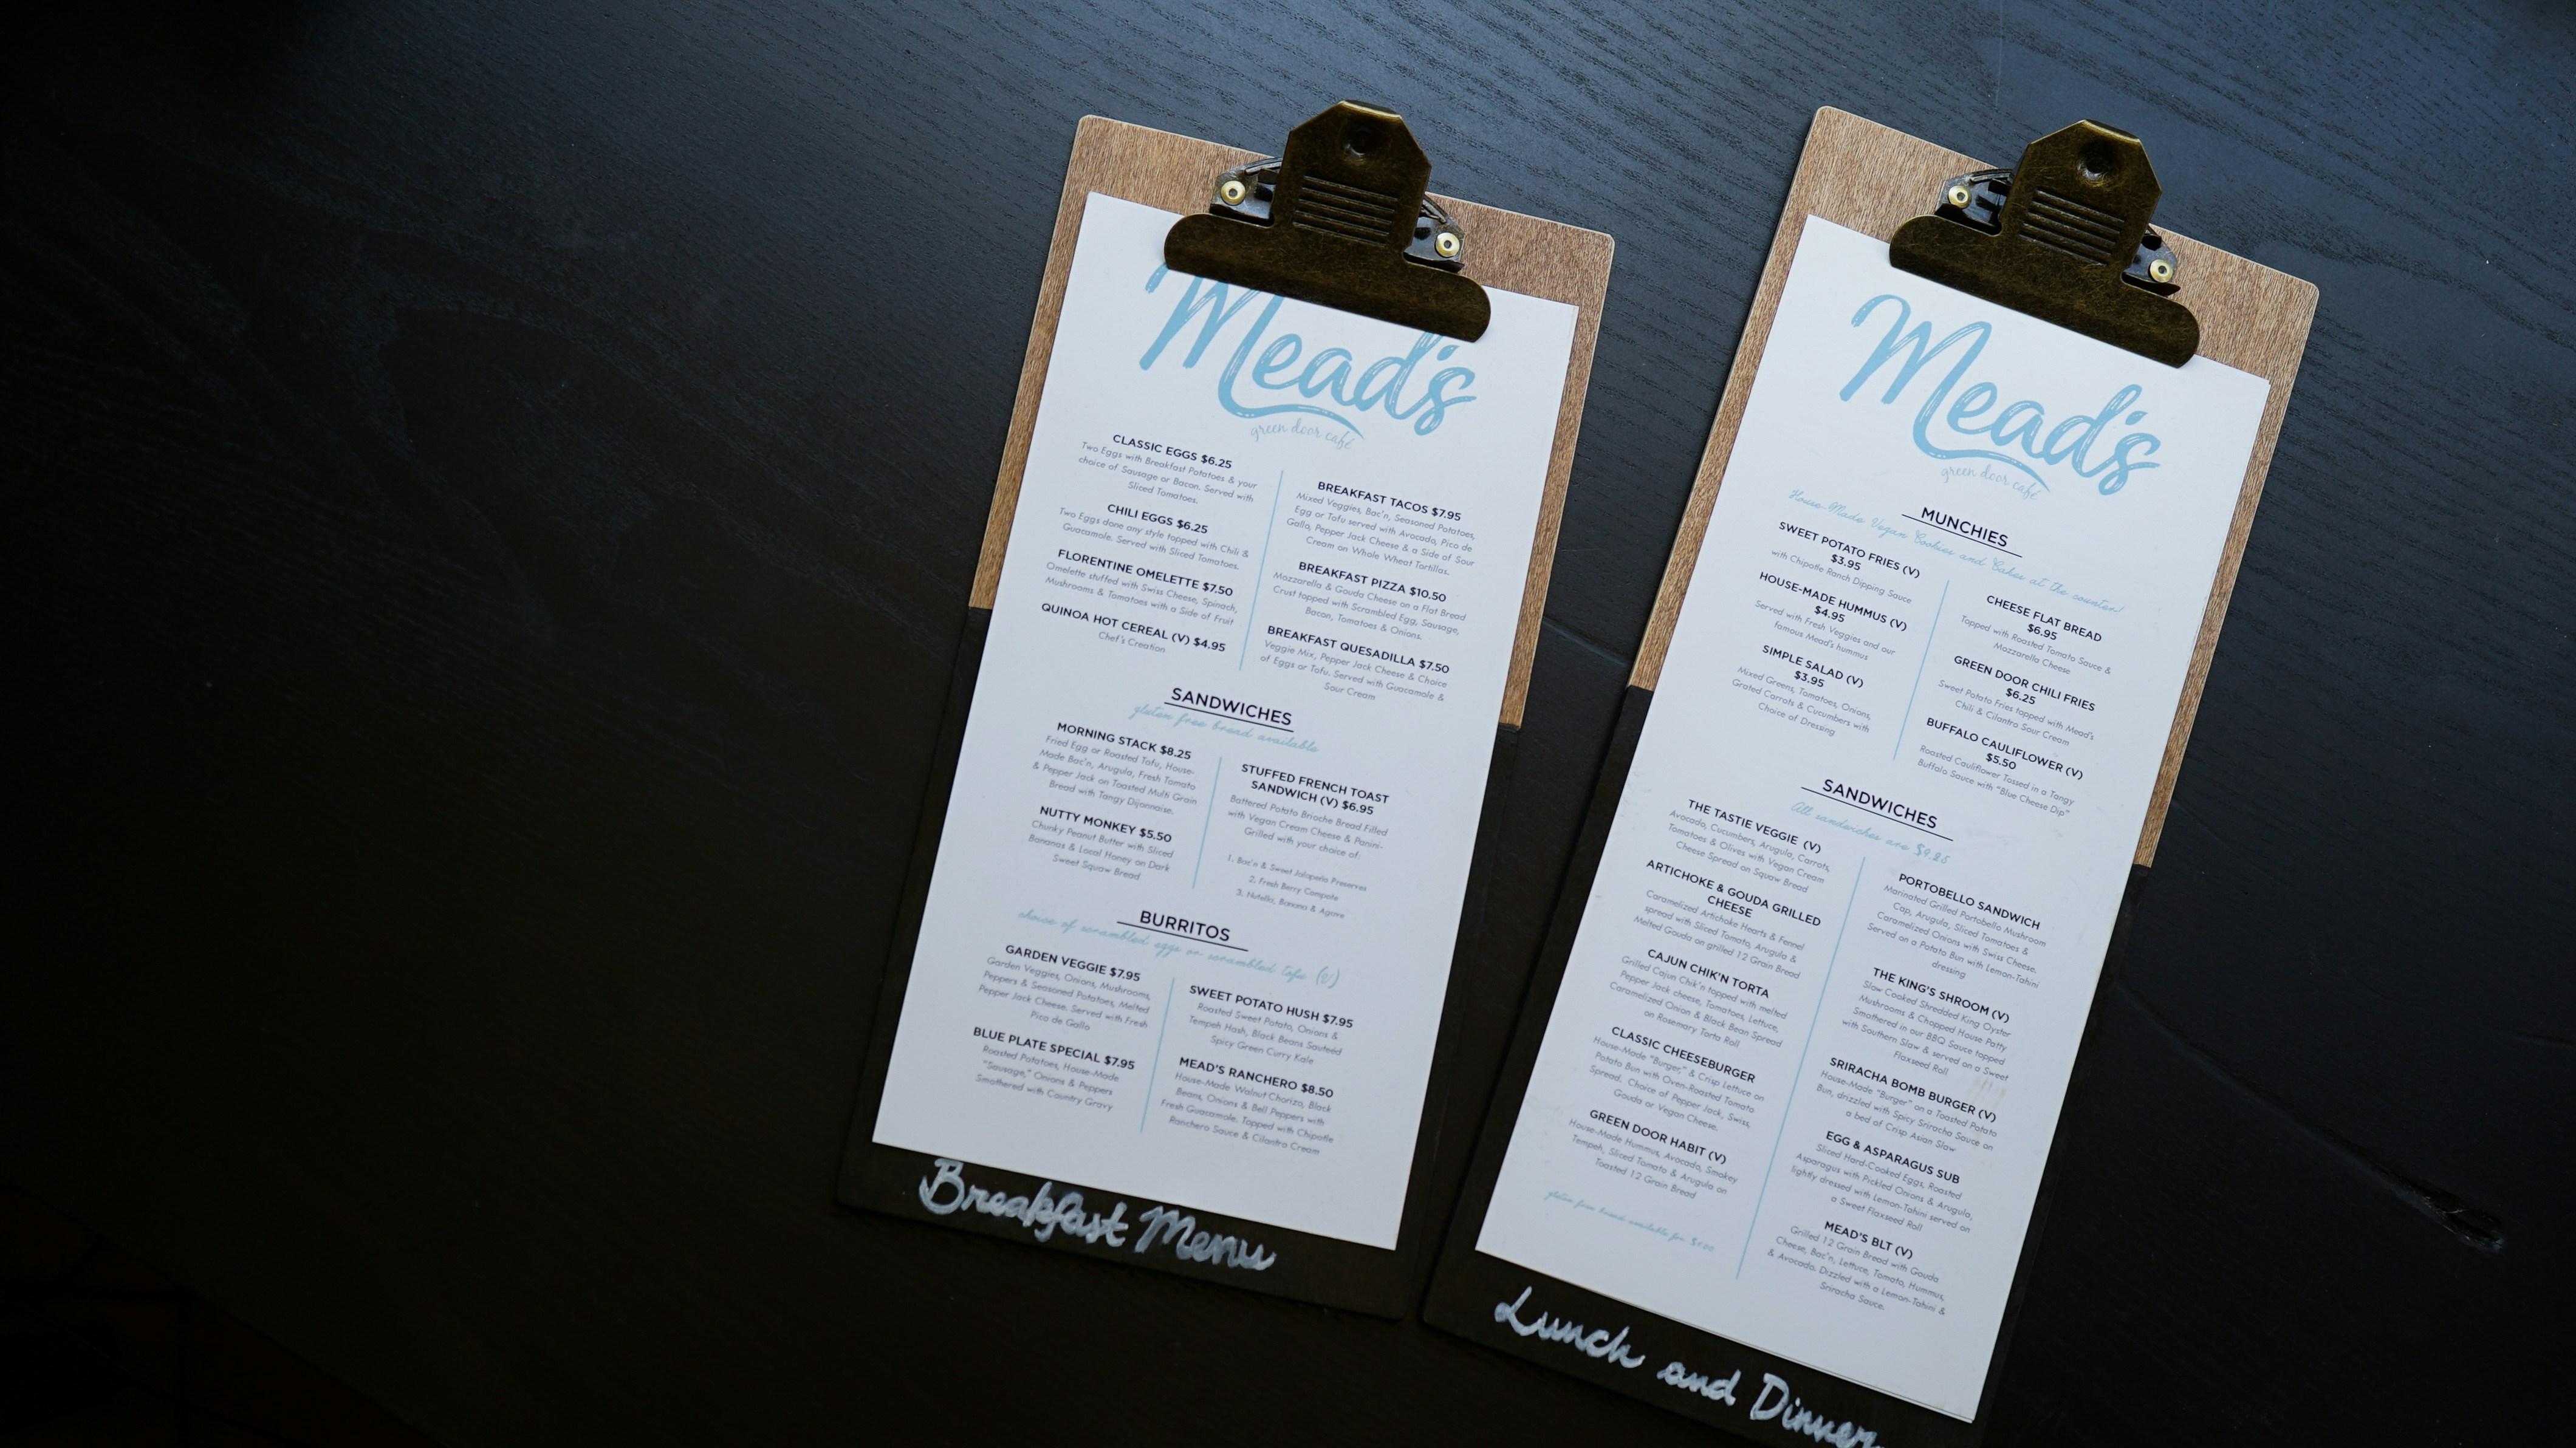 Mead's
green door café
CLASSIC EGGS $6.25
Two Eggs with Breakfast Potatoes & your
choice of Sausage or Bacon. Served with
Sliced Tomatoes.
CHILI EGGS $6.25
Two Eggs done any style topped with Chili &
Guacamole. Served with Sliced Tomatoes.
FLORENTINE OMELETTE $7.50
Omelette stuffed with Swiss Cheese, Spinach,
Mushrooms & Tomatoes with a Side of Fruit
QUINOA HOT CEREAL (V) $4.95
Chef's Creation
BREAKFAST TACOS $7.95
Mixed Veggies, Bac'n, Seasoned Potatoes,
Egg or Tofu served with Avocado, Pico de
Gallo, Pepper Jack Cheese & a Side of Sour
Cream on Whole Wheat Tortillas.
BREAKFAST PIZZA $10.50
Mozzarella & Gouda Cheese on a Flat Bread
Crust topped with Scrambled Egg, Sausage,
Bacon, Tomatoes & Onions.
BREAKFAST QUESADILLA $7.50
Veggie Mix, Pepper Jack Cheese & Choice
of Eggs or Tofu. Served with Guacamole &
Sour Cream
SANDWICHES
gluten free bread available
MORNING STACK $8.25
Fried Egg or Roasted Tofu, House-
Made Bac'n, Arugula, Fresh Tomato
& Pepper Jack on Toasted Multi Grain
Bread with Tangy Dijonnaise.
NUTTY MONKEY $5.50
Chunky Peanut Butter with Sliced
Bananas & Local Honey on Dark
Sweet Squaw Bread
STUFFED FRENCH TOAST
SANDWICH (V) $6.95
Battered Potato Brioche Bread Filled
with Vegan Cream Cheese & Panini-
Grilled with your choice of:
1. Bac'n & Sweet Jalapeño Preserves
2. Fresh Berry Compote
3. Nutella, Banana & Agave
BURRITOS
choice of scrambled eggs or scrambled tofu (v)
GARDEN VEGGIE $7.95
Garden Veggies, Onions, Mushrooms,
Peppers & Seasoned Potatoes, Melted
Pepper Jack Cheese. Served with Fresh
Pico de Gallo
BLUE PLATE SPECIAL $7.95
Roasted Potatoes, House-Made
"Sausage," Onions & Peppers
Smothered with Country Gravy
SWEET POTATO HUSH $7.95
Roasted Sweet Potato, Onions &
Tempeh Hash, Black Beans Sauteéd
Spicy Green Curry Kale
MEAD'S RANCHERO $8.50
House-Made Walnut Chorizo, Black
Beans, Onions & Bell Peppers with
Fresh Guacamole. Topped with Chipotle
Ranchero Sauce & Cilantro Cream
Breakfast Menu
Mead's
green door café
MUNCHIES
House-Made Vegan Cookies and Cakes at the counter!
SWEET POTATO FRIES (V)
$3.95
with Chipotle Ranch Dipping Sauce
HOUSE-MADE HUMMUS (V)
$4.95
Served with Fresh Veggies and our
famous Mead's hummus
SIMPLE SALAD (V)
$3.95
Mixed Greens, Tomatoes, Onions,
Grated Carrots & Cucumbers with
Choice of Dressing
CHEESE FLAT BREAD
$6.95
Topped with Roasted Tomato Sauce &
Mozzarella Cheese
GREEN DOOR CHILI FRIES
$6.25
Sweet Potato Fries topped with Mead's
Chili & Cilantro Sour Cream
BUFFALO CAULIFLOWER (V)
$5.50
Roasted Cauliflower Tossed in a Tangy
Buffalo Sauce with "Blue Cheese Dip"
SANDWICHES
All sandwiches are $9.25
THE TASTIE VEGGIE (V)
Avocado, Cucumbers, Arugula, Carrots,
Tomatoes & Olives with Vegan Cream
Cheese Spread on Squaw Bread
ARTICHOKE & GOUDA GRILLED
CHEESE
Caramelized Artichoke Hearts & Fennel
spread with Sliced Tomato, Arugula &
Melted Gouda on grilled 12 Grain Bread
CAJUN CHIK'N TORTA
Grilled Cajun Chik'n topped with melted
Pepper Jack cheese, Tomatoes, Lettuce,
Caramelized Onion & Black Bean Spread
on Rosemary Torta Roll
CLASSIC CHEESEBURGER
House-Made "Burger," & Crisp Lettuce on
Potato Bun with Oven-Roasted Tomato
Spread. Choice of Pepper Jack, Swiss,
Gouda or Vegan Cheese.
GREEN DOOR HABIT (V)
House-Made Hummus, Avocado, Smokey
Tempeh, Sliced Tomato & Arugula on
Toasted 12 Grain Bread
gluten free bread available for $1.00
PORTOBELLO SANDWICH
Marinated Grilled Portobello Mushroom
Cap, Arugula, Sliced Tomatoes &
Caramelized Onions with Swiss Cheese.
Served on a Potato Bun with Lemon-Tahini
dressing
THE KING'S SHROOM (V)
Slow Cooked Shredded King Oyster
Mushrooms & Chopped House Patty
Smothered in our BBQ Sauce topped
with Southern Slaw & served on a Sweet
Flaxseed Roll
SRIRACHA BOMB BURGER (V)
House-Made "Burger" on a Toasted Potato
Bun, drizzled with Spicy Sriracha Sauce on
a bed of Crisp Asian Slaw
EGG & ASPARAGUS SUB
Sliced Hard-Cooked Eggs, Roasted
Asparagus with Pickled Onions & Arugula,
lightly dressed with Lemon-Tahini served on
a Sweet Flaxseed Roll
MEAD'S BLT (V)
Grilled 12 Grain Bread with Gouda
Cheese, Bac'n, Lettuce, Tomato, Hummus,
& Avocado. Dizzled with a Lemon-Tahini &
Sriracha Sauce.
Lunch and Dinner